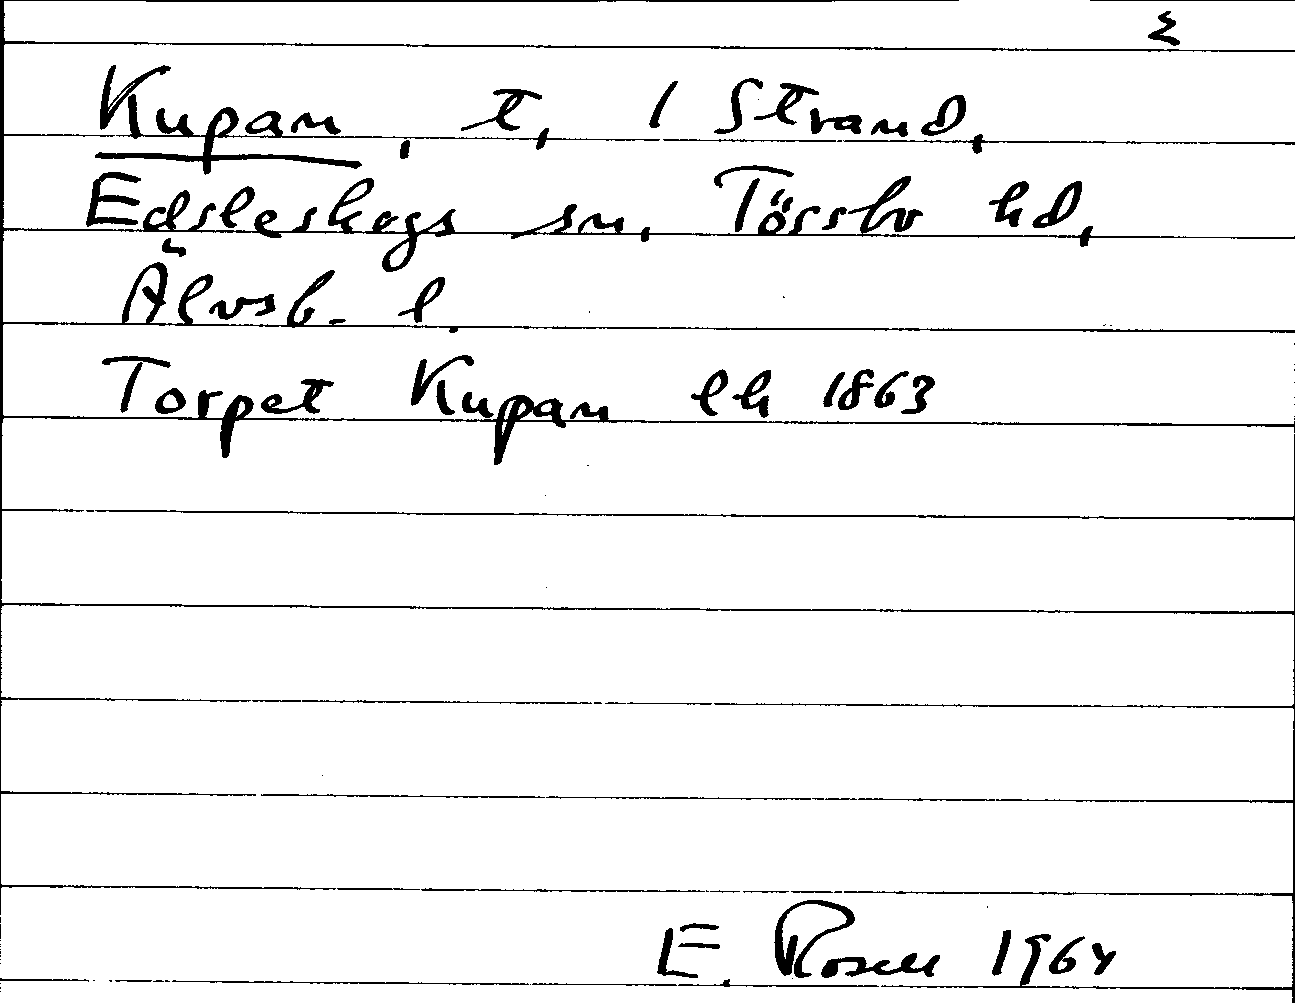 Kupan, t, 1 Strand,
Edsleskogs sn. Tössbo hd,
Älvsb. l.
Torpet Kupan lh 1863
E. Rosell 1964